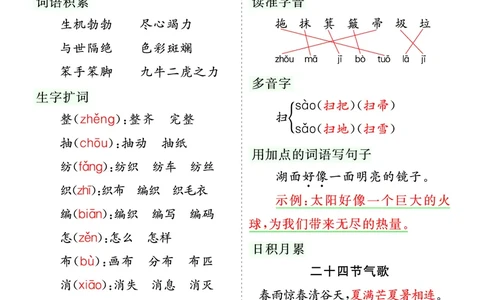 词语积累
生机勃勃 尽心竭力
与世隔绝 色彩斑斓
笨手笨脚 九牛二虎之力
生字扩词
整(zhěng):整齐 完整
抽(chōu):抽动 抽纸
纺(fǎng):纺织 纺车 纺丝
织(zhī):织布 编织 织毛衣
编(biān):编织 编写 编码
怎(zěn):怎么 怎样
布(bù):画布 分布 布匹
消(xiāo):消失 消息 消灭
读准字音
拖 抹 箕 簸 帚 圾 垃
zhǒu mā jī bò tuō lā jī
多音字
扫
sào(扫把)(扫帚)
sǎo(扫地)(扫雪)
用加点的词语写句子
湖面好像一面明亮的镜子。
示例:太阳好像一个巨大的火
球,为我们带来无尽的热量。
日积月累
二十四节气歌
春雨惊春清谷天,夏满芒夏暑相连。